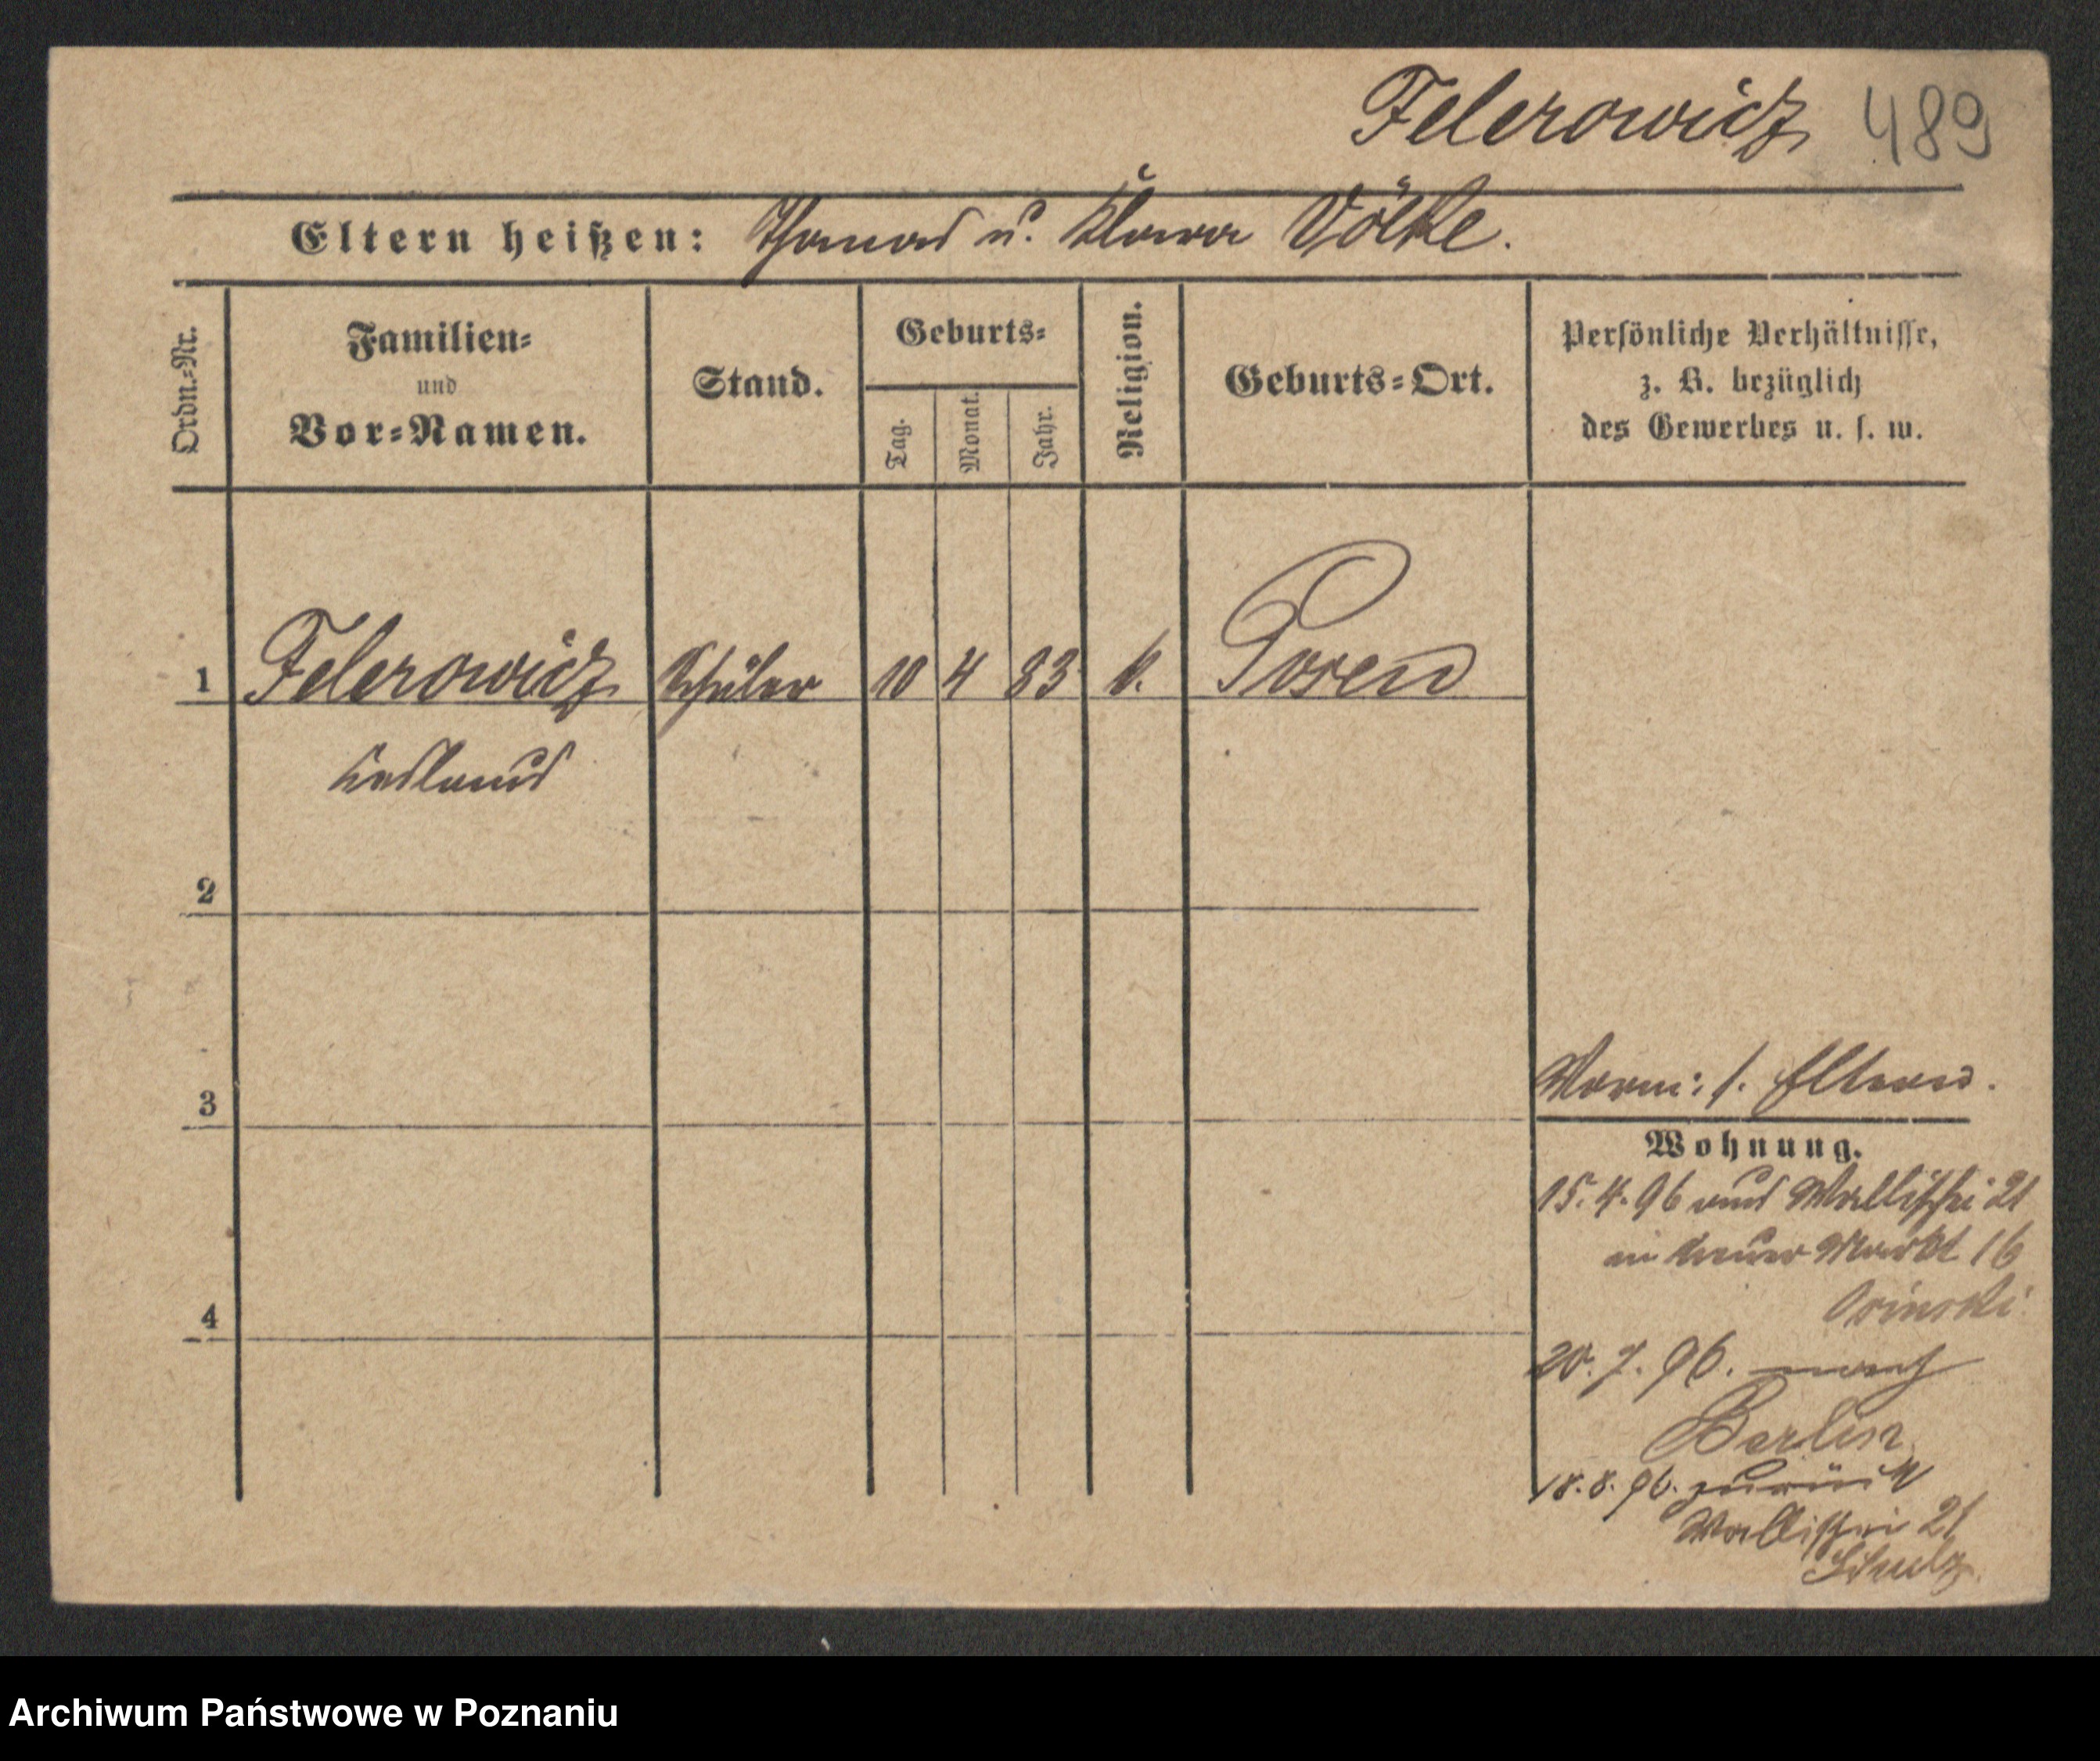 Felerowicz 489
Eltern heißen: Thomas u. Klara Völke.
Ordn.-Nr.
Familien-
und
Vor-Namen.
Stand.
Geburts-
Tag.
Monat.
Jahr.
Religion.
Geburts-Ort.
Persönliche Verhältnisse,
z. B. bezüglich
des Gewerbes u. s. w.
1 Felerowicz Schüler 10 4 83 k. Posen
2
3
4
Vorm: s. Eltern.
Wohnung.
15.4.96 aus Wallischei 21
in Neuer Markt 16
20.7.96. nach
Berlin
18.8.96. zurück
Wallischei 21
Schulz
Archiwum Państwowe w Poznaniu